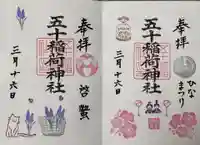 奉拝
ひな
まつり
五十稲荷神社
三月十六日
奉拝
啓蟄
五十稲荷神社
三月十六日